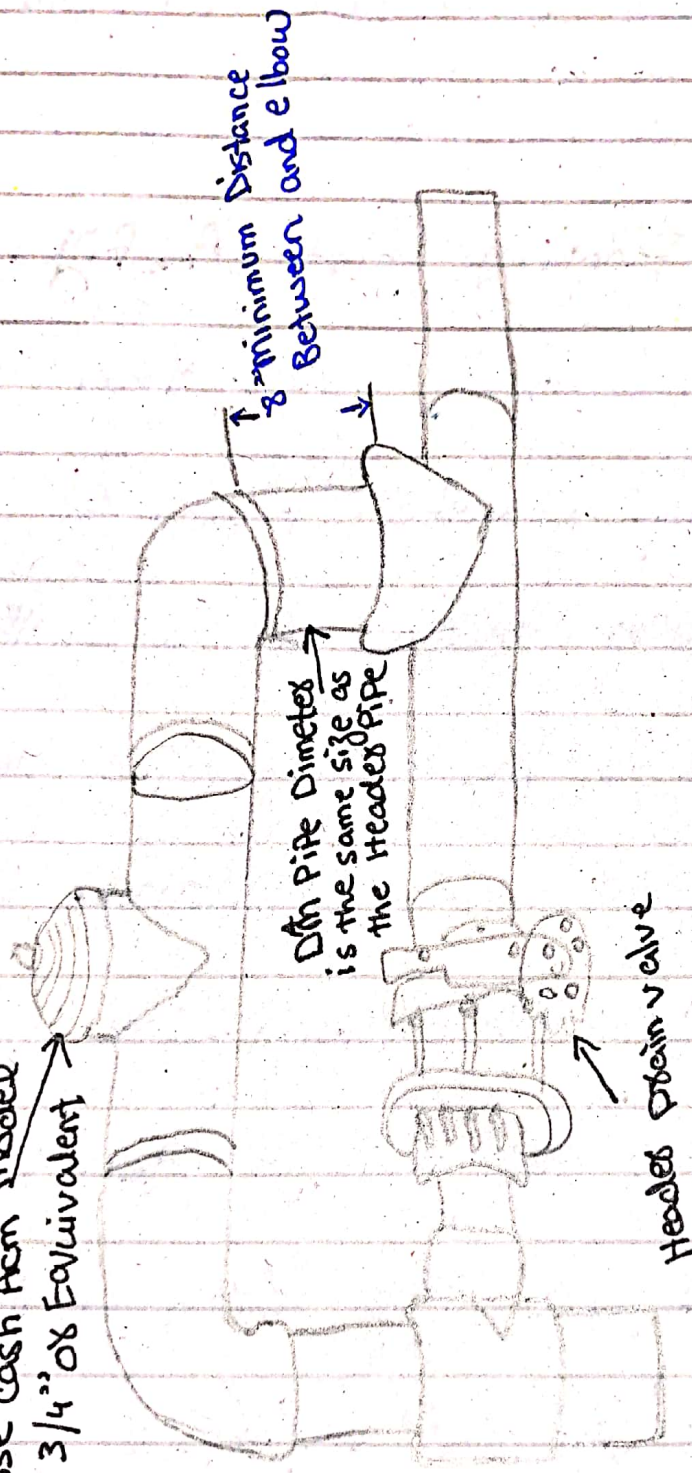 use cash Acm Model
3/4" or Eavuivalent
8" minimum Distance
Between and elbow
Pipe Dimeter
is the same size as
the Header Pipe
Header Drain valve